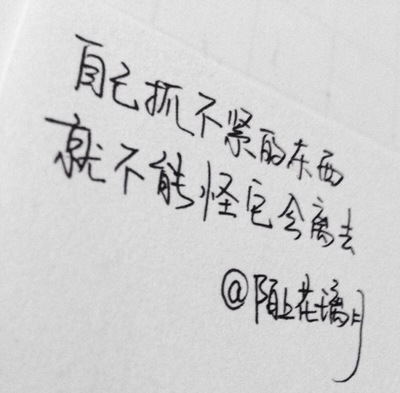 自己抓不紧的东西
就不能怪它会离去
@陌上花璃月